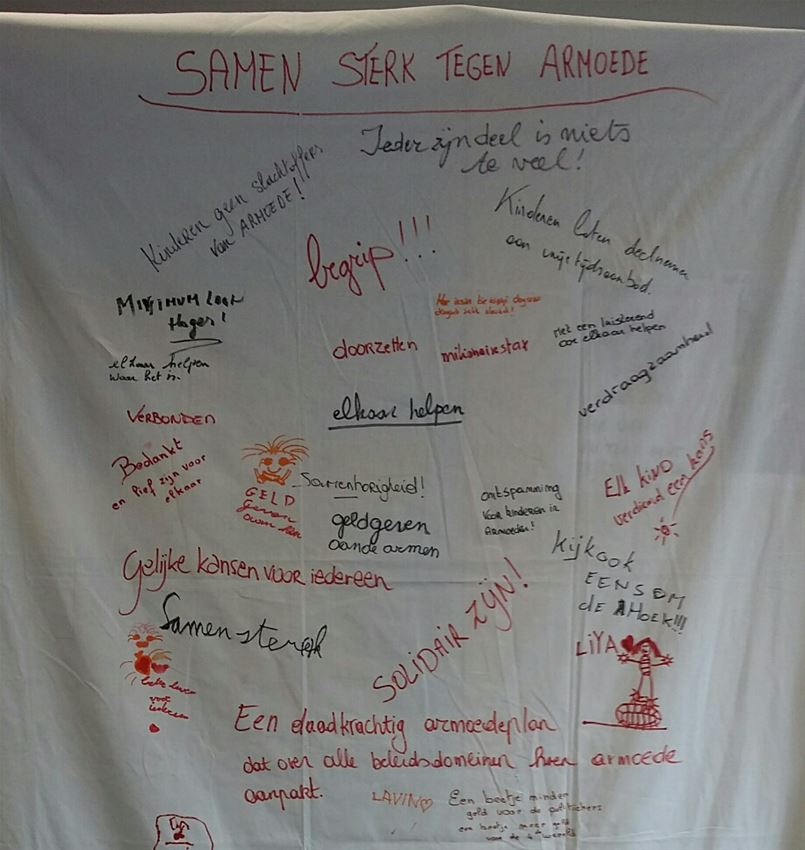 SAMEN STERK TEGEN ARMOEDE
Ieder zijn deel is niets
te veel!
Kinderen geen slachtoffers
van ARMOEDE!
Kinderen laten deelnemen
aan vrijetijdsaanbod.
begrip!!!
MINIMUM loon
Hoger!
doorzetten
milionairstax
Met een luisterend
oor elkaar helpen
verdraagzaamheid
elkaar helpen
waar het is.
VERBONDEN
elkaar helpen
Bedankt
en lief zijn voor
elkaar
GELD
geven
Samenhorigheid!
geldgeven
aande armen
ontspanning
voor kinderen in
ARMOEDE!
Elk kind
verdiend een kans
Gelijke kansen voor iedereen
kijk ook
EENS OM
de HOEK!!!
Samen sterk
SOLIDAIR ZIJN!
LIYA
Een daadkrachtig armoedeplan
dat over alle beleidsdomeinen heen armoede
aanpakt.
LAVIN
Een beetje minder
geld voor de politiekers
een beetje meer geld
voor de 4de wereld